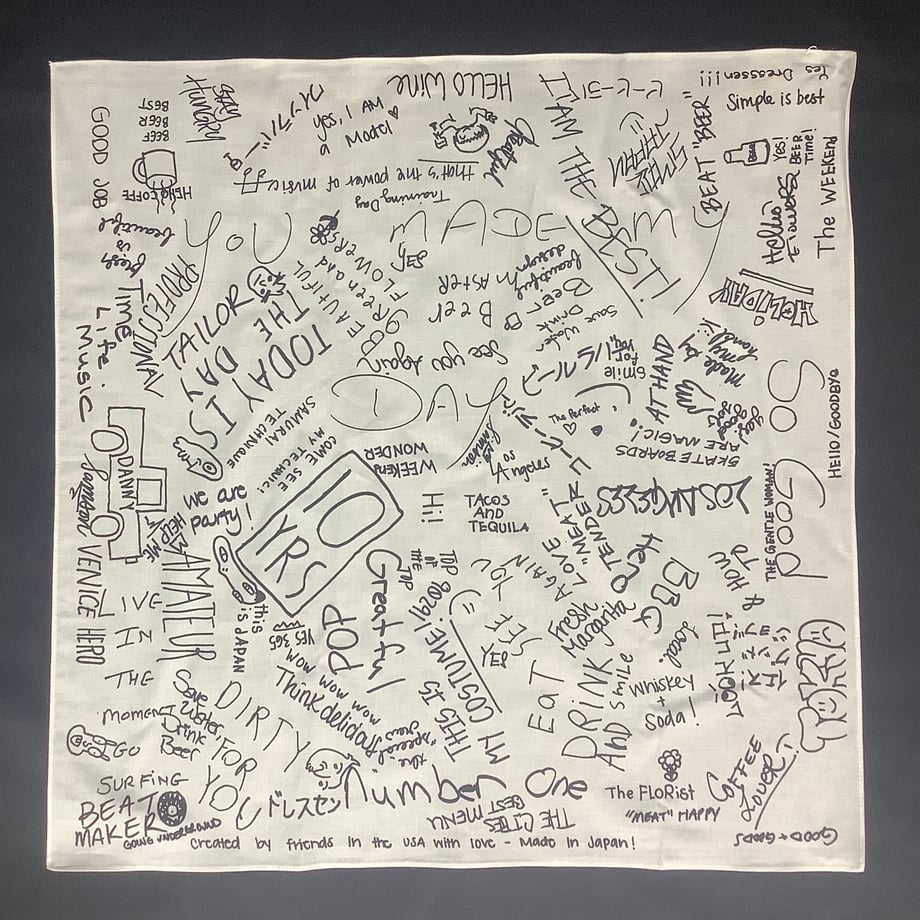 HELLO Wine
Yes Dreassen!!!
Simple is best
GOOD JOB
BEER
BEER
BEST
STAY
HUNGRY
yes, I AM
a Model
Grateful
I AM THE BEST!
ビービーライ
BEAT "BEER"
Yes!
BEER
Time!
The WEEKEND
HELLO COFFEE
that's the power of music
Training Day
Hello
FLOWERS
beautiful
is
fresh
PROFESSIONAL
YOU
MADE
MY
DAY
YES
BEAUTIFUL
Green and
FLOWERS
TAILOR
TODAY IS
THE DAY
Time.
Life.
Music
Beer Master
beautiful
design
Beer
Save Water
Drink
See you Again
Smile
for
you,
HOLIDAY
Made by
my hand!!
AT HAND
SKATE BOARDS
ARE MAGIC!
SO
GOOD
HELLO/GOODBYE
THE GENTLE WOMAN!
The Perfect
SAMURAI
TECHNIQUE
COME SEE
MY TECHNIC!
WEEKEND
WONDER
Los Angeles
LOS ANGELES
DANNY
Samson
we are
party!
HELP ME
10
YRS
Hi!
TACOS
AND
TEQUILA
VENICE HERO
AMATEUR
LIVE
IN
THE
MOMENT
this
is JAPAN
YES 365
POP
Greatful
TOP
OF
THE
TOP
2019!
THIS IS
MY COSTUME!
SEE
YOU
AGAIN
"MEAT"
LOVE
TENDER
Hello
BBQ
Good!
Fresh
Margarita
EAT
DRINK
AND Smile
Whiskey
+
Soda!
LOOK AT
wow wow wow
Think delicious!
the
"special"
Save
Water
Drink
Beer
DIRTY
FOR
YOU
GO
SURFING
BEAT
MAKER
GOING UNDERGROUND
ドレスセン
Number One
THE CITIES
BEST MENU
The FLoRist
"MEAT" HAPPY
COFFEE
LOVER!
GOOD + GOODS
created by friends in the USA with love - Made in Japan!